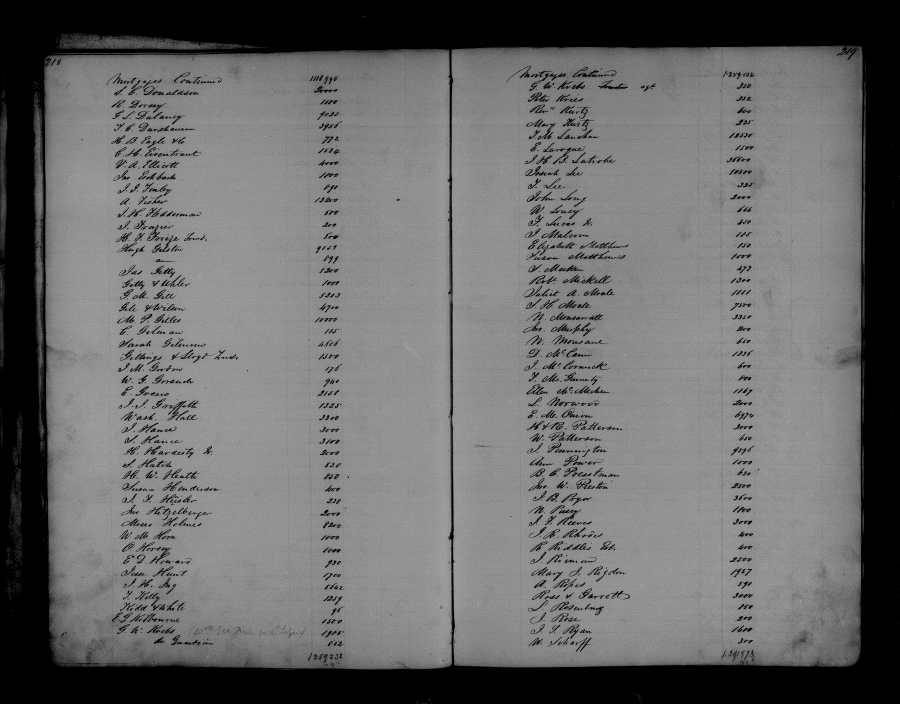 218
Mortgages Continued 1118990
S. C. Donaldson 20000
R. Dorsey 1500
G L. Dulaney 9025
T. C. Dunghausen 3956
H. B Eagle & Co 772
C. H. Eisenbrant 1524
V. A. Ellicott 4000
Jas Eshbach 1800
J. J. Fenley 890
A. Fisher 13200
J. H. Fledderman 500
J. Frazier 200
H. F. Friese Trust. 500
Hugh Gelston
899
Jas Getty 1200
Getty & Uhler 1000
G. M. Gill 5303
Gill & Wilson 4700
M. P. Gilles 10000
C. Gilman 115
Sarah Gilmore
Gittings & Lloyd Trus. 1500
J M. Gordon 176
W. G. Gorsuch 940
E. Green 2158
J. J. Griffith 1325
Wash. Hall 3300
J. Hance 3000
S. Hance 3100
H. Hardesty Jr. 2000
S. Hatch 520
H. W. Heath 850
Susan Henderson 400
J. F. Hiesler 238
Jno Hitzelberger 2000
Moses Holmes 8200
W. M. Horn 1000
O Horsey 1000
E D. Howard 930
Jesse Hunt 1700
J. H. Ing
T. Kelly 1259
Kidd & White 96
E G Kilbourne 1500
G. W. Krebs 1905
do Guardian 852
1259232
219
Mortgages Continued 1259232
G. W Krebs agt. 350
Peter Kries 352
Revd Kurtz 600
Mary Kurtz 235
J. M. Lanahan 12530
E. Laroque 1500
J H B. Latrobe 36600
Josiah Lee 10500
T. Lee 325
John Long 2000
W. Loney 666
F. Lucas Jr. 450
J Malcom 115
Elizabeth Matthews 150
Jason Matthews 1000
S. Meeken 477
Robt Mickell 1300
Juliet A. Moale 1111
S. H. Moale 7500
N. Monsarratt 3350
Jno. Murphy 200
W. Monsane 650
D. McCann 1336
J. McCormick 600
T. Mc 100
Ellen McMechen 1167
L. Norwood 2000
E. M. Onion 6974
H & R. Patterson 3000
W. Patterson 650
J. Pennington 9395
Ann Power 1000
B. C. Presstman 620
Jno. W. Preston 2500
J. B. Pryor 3600
N. Pusey 1800
J. F. Reeves 3000
J. R. Rhodes 400
R. Riddles Est. 400
J. Rieman 2500
Mary J. Rigden 1957
A. Ropes 590
Ross & Garrett 3000
L. Rosenburg 150
J. Rose 200
J. S. Ryan 1600
W. Scharff 300
1391973